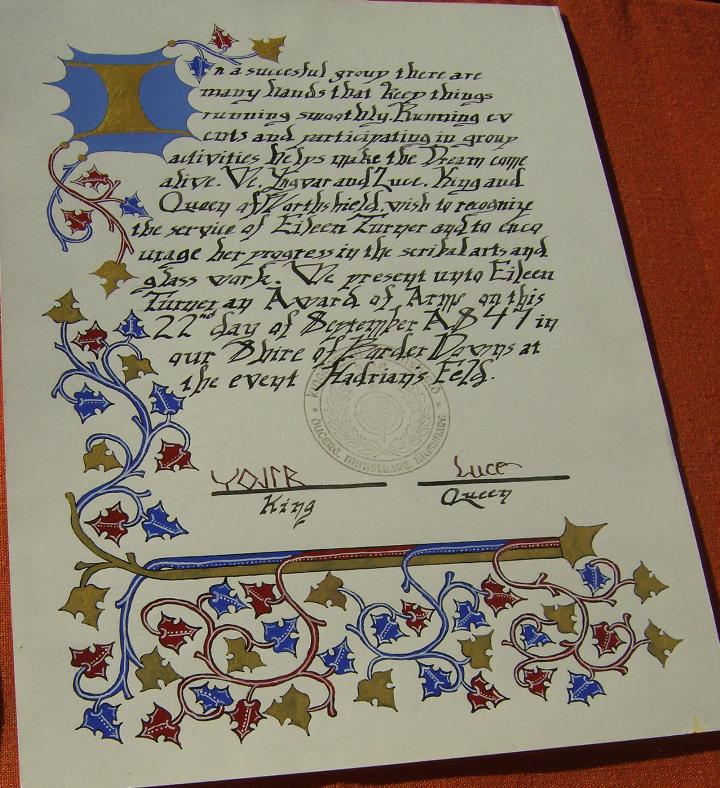 In a succesful group there are
many hands that keep things
running smoothly. Running ev
ents and participating in group
activities helps make the Dream come
alive. We, Yngvar and Luce, King and
Queen of Northshield, wish to recognize
the service of Eileen Turner and to enco
urage her progress in the scribal arts and
glass work. We present unto Eileen
Turner an Award of Arms on this
22nd day of September AS 47 in
our Shire of Border Downs at
the event Hadrians Feld.
DUCERE, MINISTRARE, ILLUMINARE
Luce
King Queen